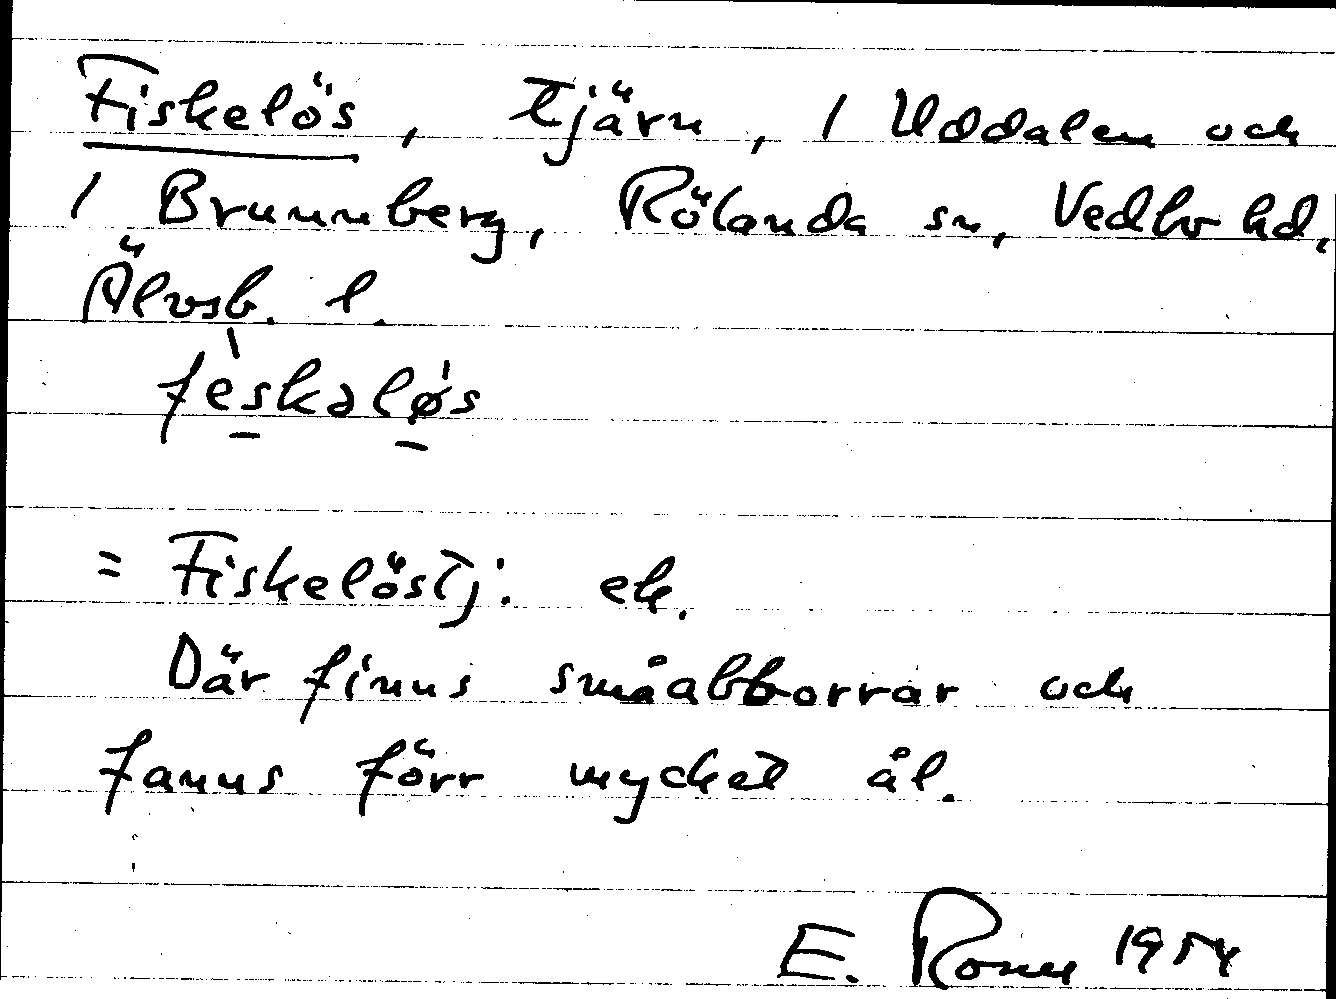 Fiskelös, tjärn, 1 Uddalen och
1 Brunnberg, Rölanda sn, Vedbo hd,
Älvsb. l.
fèskəløs
= Fiskelöstj: ek.
Där finns småabborrar och
fanns förr mycket ål.
E. Rone 1954